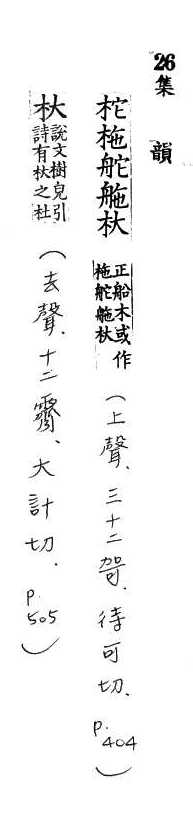 26集韻
柁柂舵䑨杕 正船木或作柂舵䑨杕（上聲、三十二哿、待可切、p.404）
杕 說文樹皃引詩有杕之杜（去聲、十二霽、大計切、p.505）